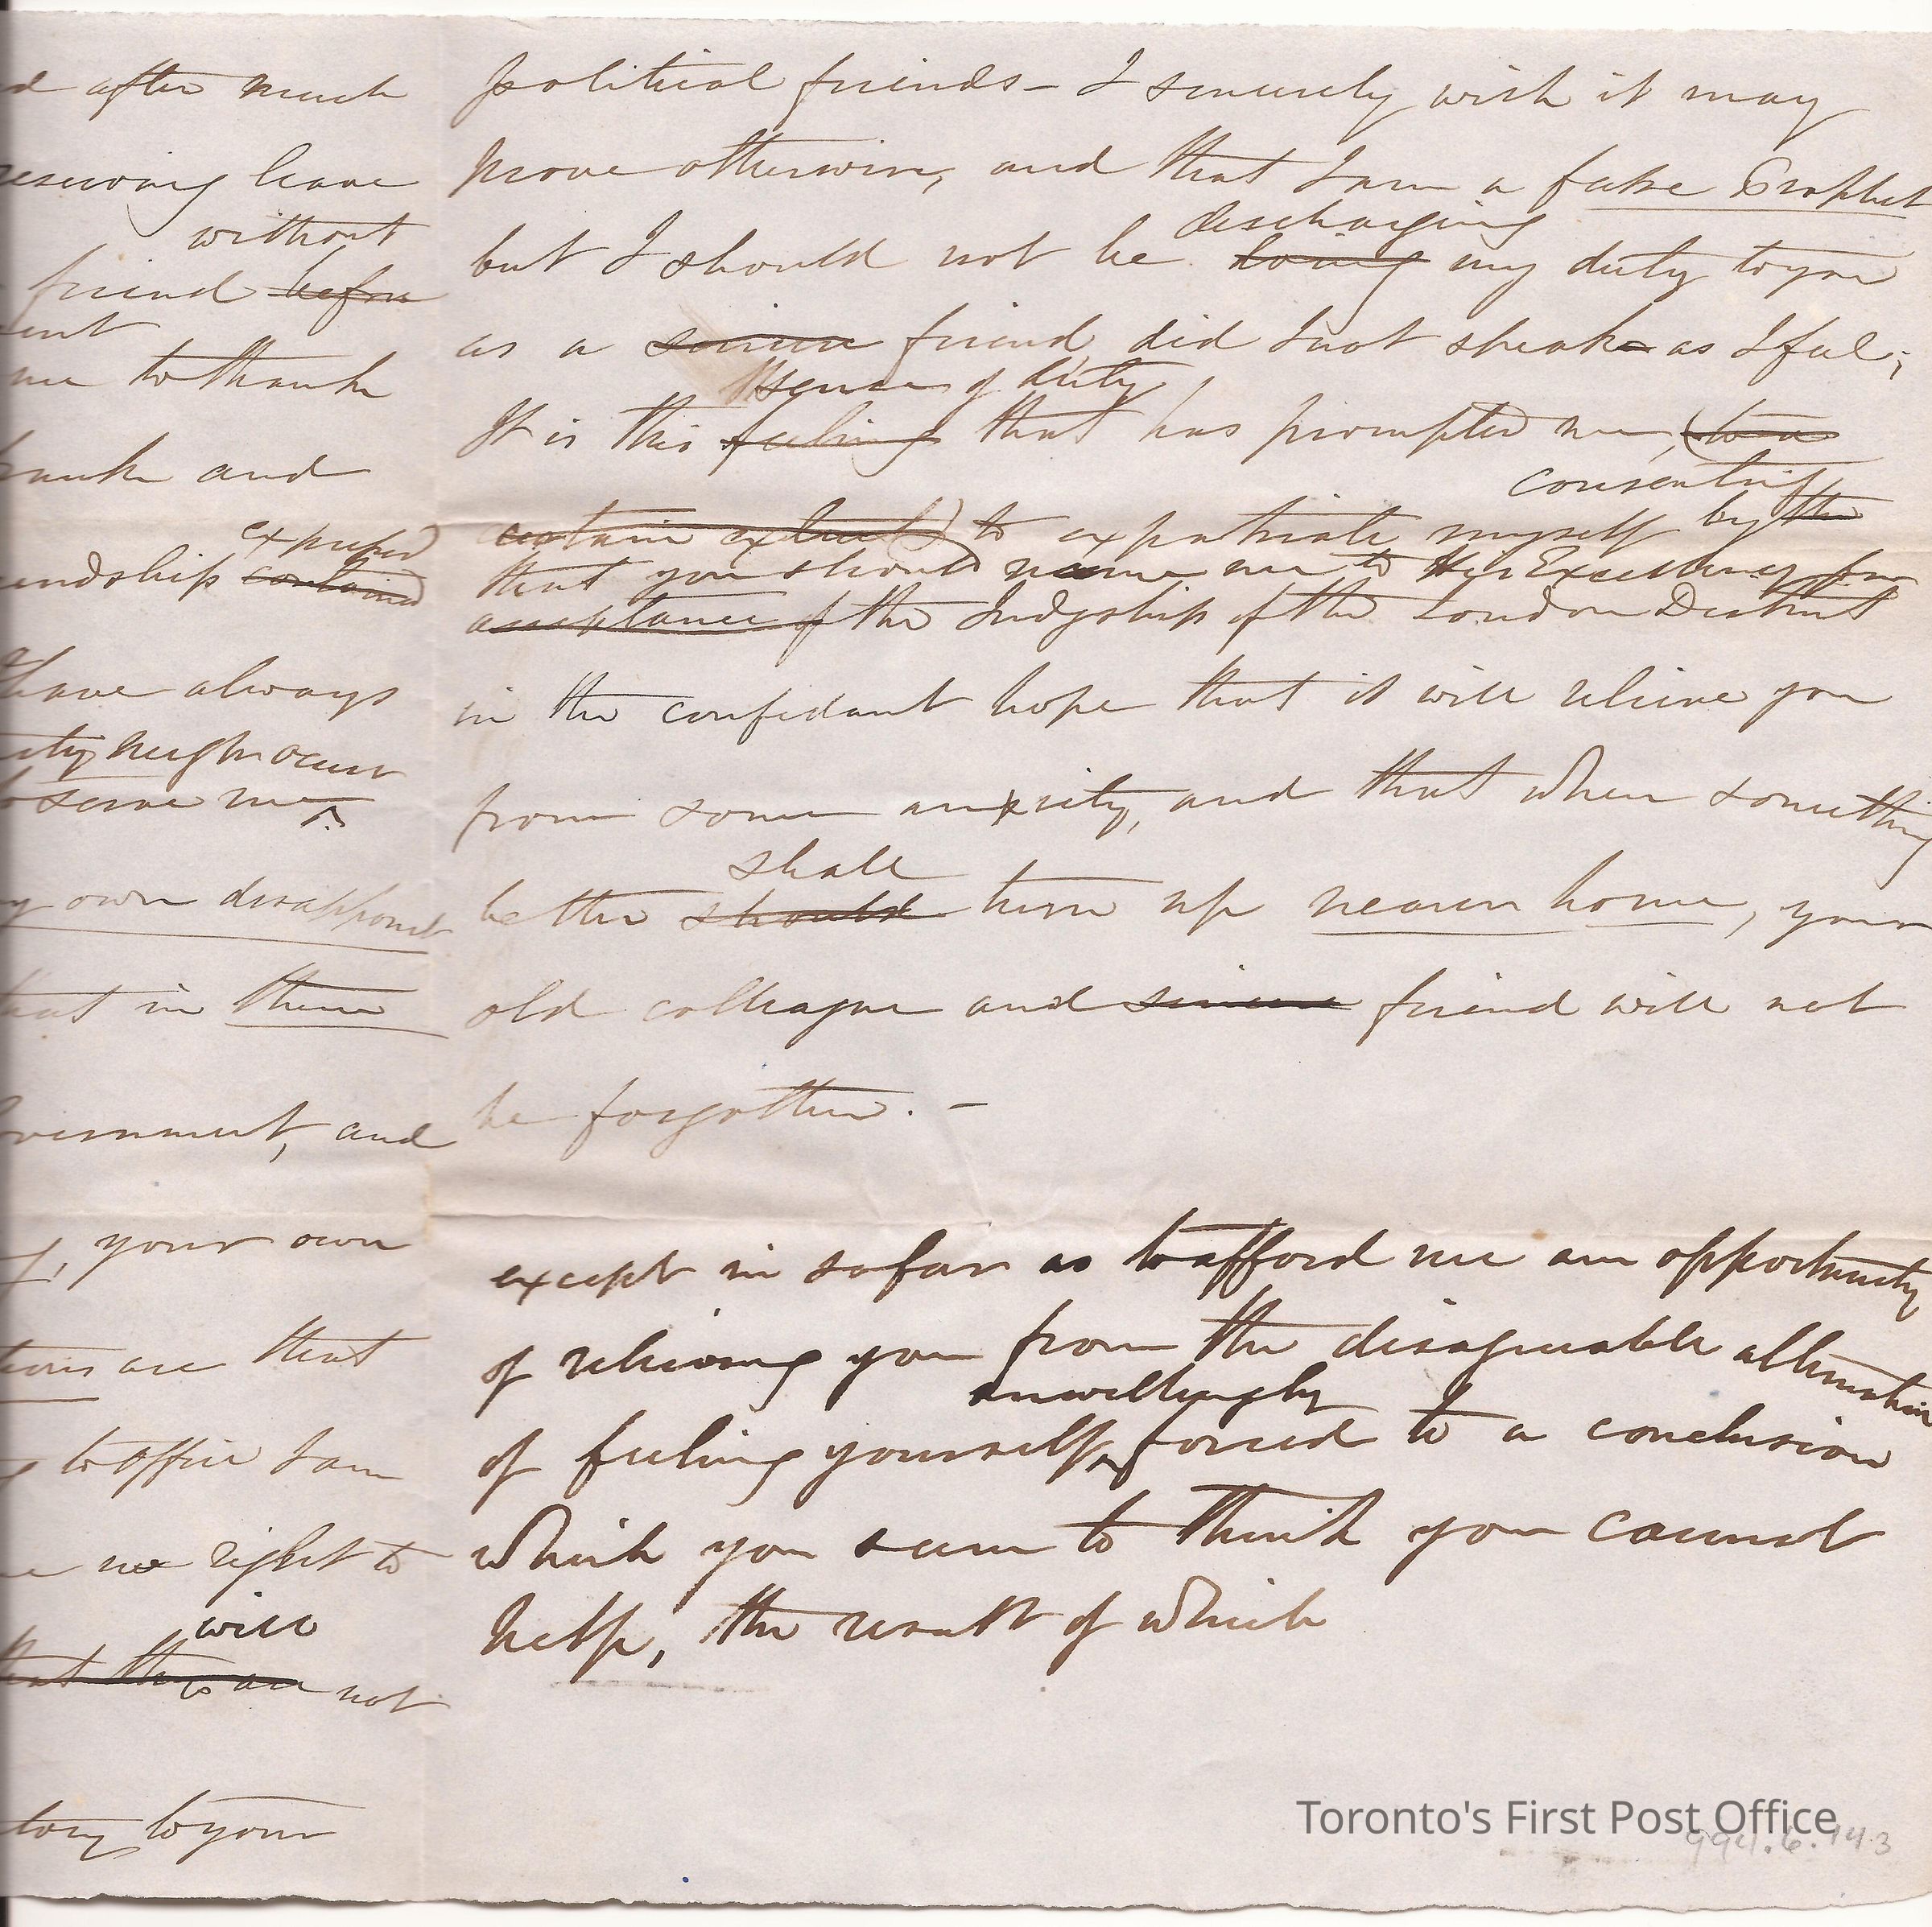 d after much
reserving leave
without
friend before
ent
me to thank
and
expressed
endship contained
have always
ity might occur
to serve me
my own disappoint
that in them
overnment, and
, your own
tions are that
g to office I am
e no right to
will
that they are not
tory to your
political friends – I sincerely wish it may
prove otherwise, and that I am a false Prophet
discharging
but I should not be doing my duty to you
as a sincere friend, did I not speak as I feel;
sense of duty
It is this feeling that has prompted me, (to a
consenting
certain extent) to expatriate myself by the
that you should name me to His Excellency for
acceptance of the Judgship of the London District
in the confidant hope that it will relieve you
from some anxiety, and that when something
shall
better should turn up nearer home, your
old colleague and sincere friend will not
be forgotten. –
except in sofar as to afford me an opportunity
of relieving you from the disagreeable alternative
unwillingly
of feeling yourself forced to a conclusion
which you seem to think you cannot
help, the result of which
Toronto's First Post Office
994.6.143